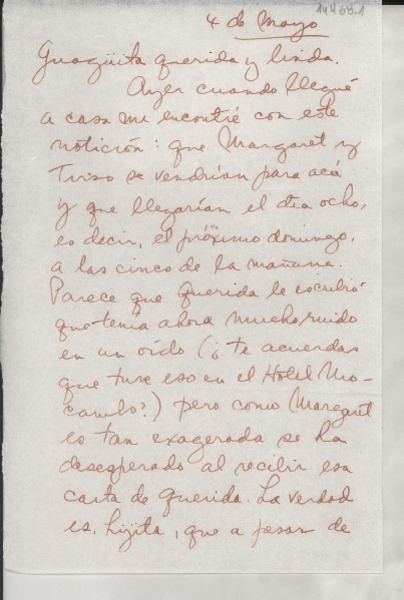 14468.1
4 de Mayo
Guagüita querida y linda.
Ayer cuando llegué
a casa me encontré con este
notición: que Margaret y
Tirso se vendrían para acá
y que llegarían el día ocho,
es decir, el próximo domingo,
a las cinco de la mañana.
Parece que Querida le escribió
que tenía ahora mucho ruido
en un oído (¿te acuerdas
que tuve eso en el Hotel Mo-
cambo?) pero como Margaret
es tan exagerada se ha
desesperado al recibir esa
carta de Querida. La verdad
es, hijita, que a pesar de